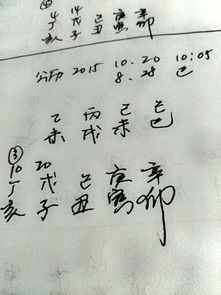 ④
丁 戊 己 庚 辛
亥 子 丑 寅 卯
公历 2015 10.20 10:05
8.28 巳
乙 丙 己 己
未 戌 未 巳
③
10 20
丁 戊 己 庚 辛
亥 子 丑 寅 卯